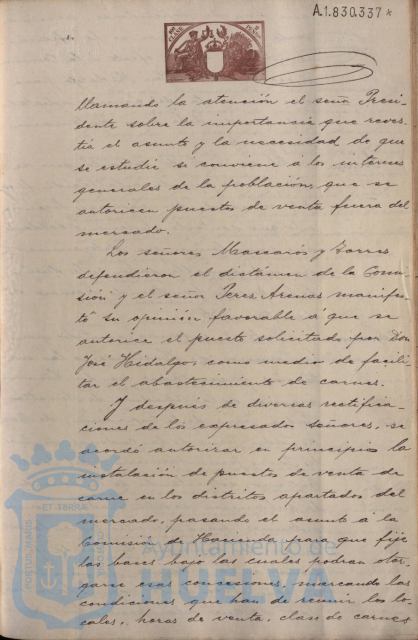 A.1.830.337*
llamando la atención el señor Presi-
dente sobre la importancia que reves-
tia el asunto y la necesidad de que
se estudie si conviene á los intereses
generales de la población, que se
autoricen puestos de venta fuera del
mercado.
Los señores Mascarós y Torres
defendieron el dictámen de la Comi-
sión y el señor Peres Arenas manifes-
tó su opinión favorable á que se
autorice el puesto solicitado por Don
José Hidalgo, como medio de facili-
tar el abastecimiento de carnes.
Y después de diversas rectifica-
ciones de los expresados señores, se
acordó autorizar en principio la
instalación de puestos de venta de
carne en los distritos apartados del
mercado, pasando el asunto á la
Comisión de Hacienda para que fije
las bases bajo las cuales podran otor-
garse esas concesiones, marcando las
condiciones que han de reunir los lo-
cales, horas de venta, clase de carnes
Ayuntamiento de
HUELVA